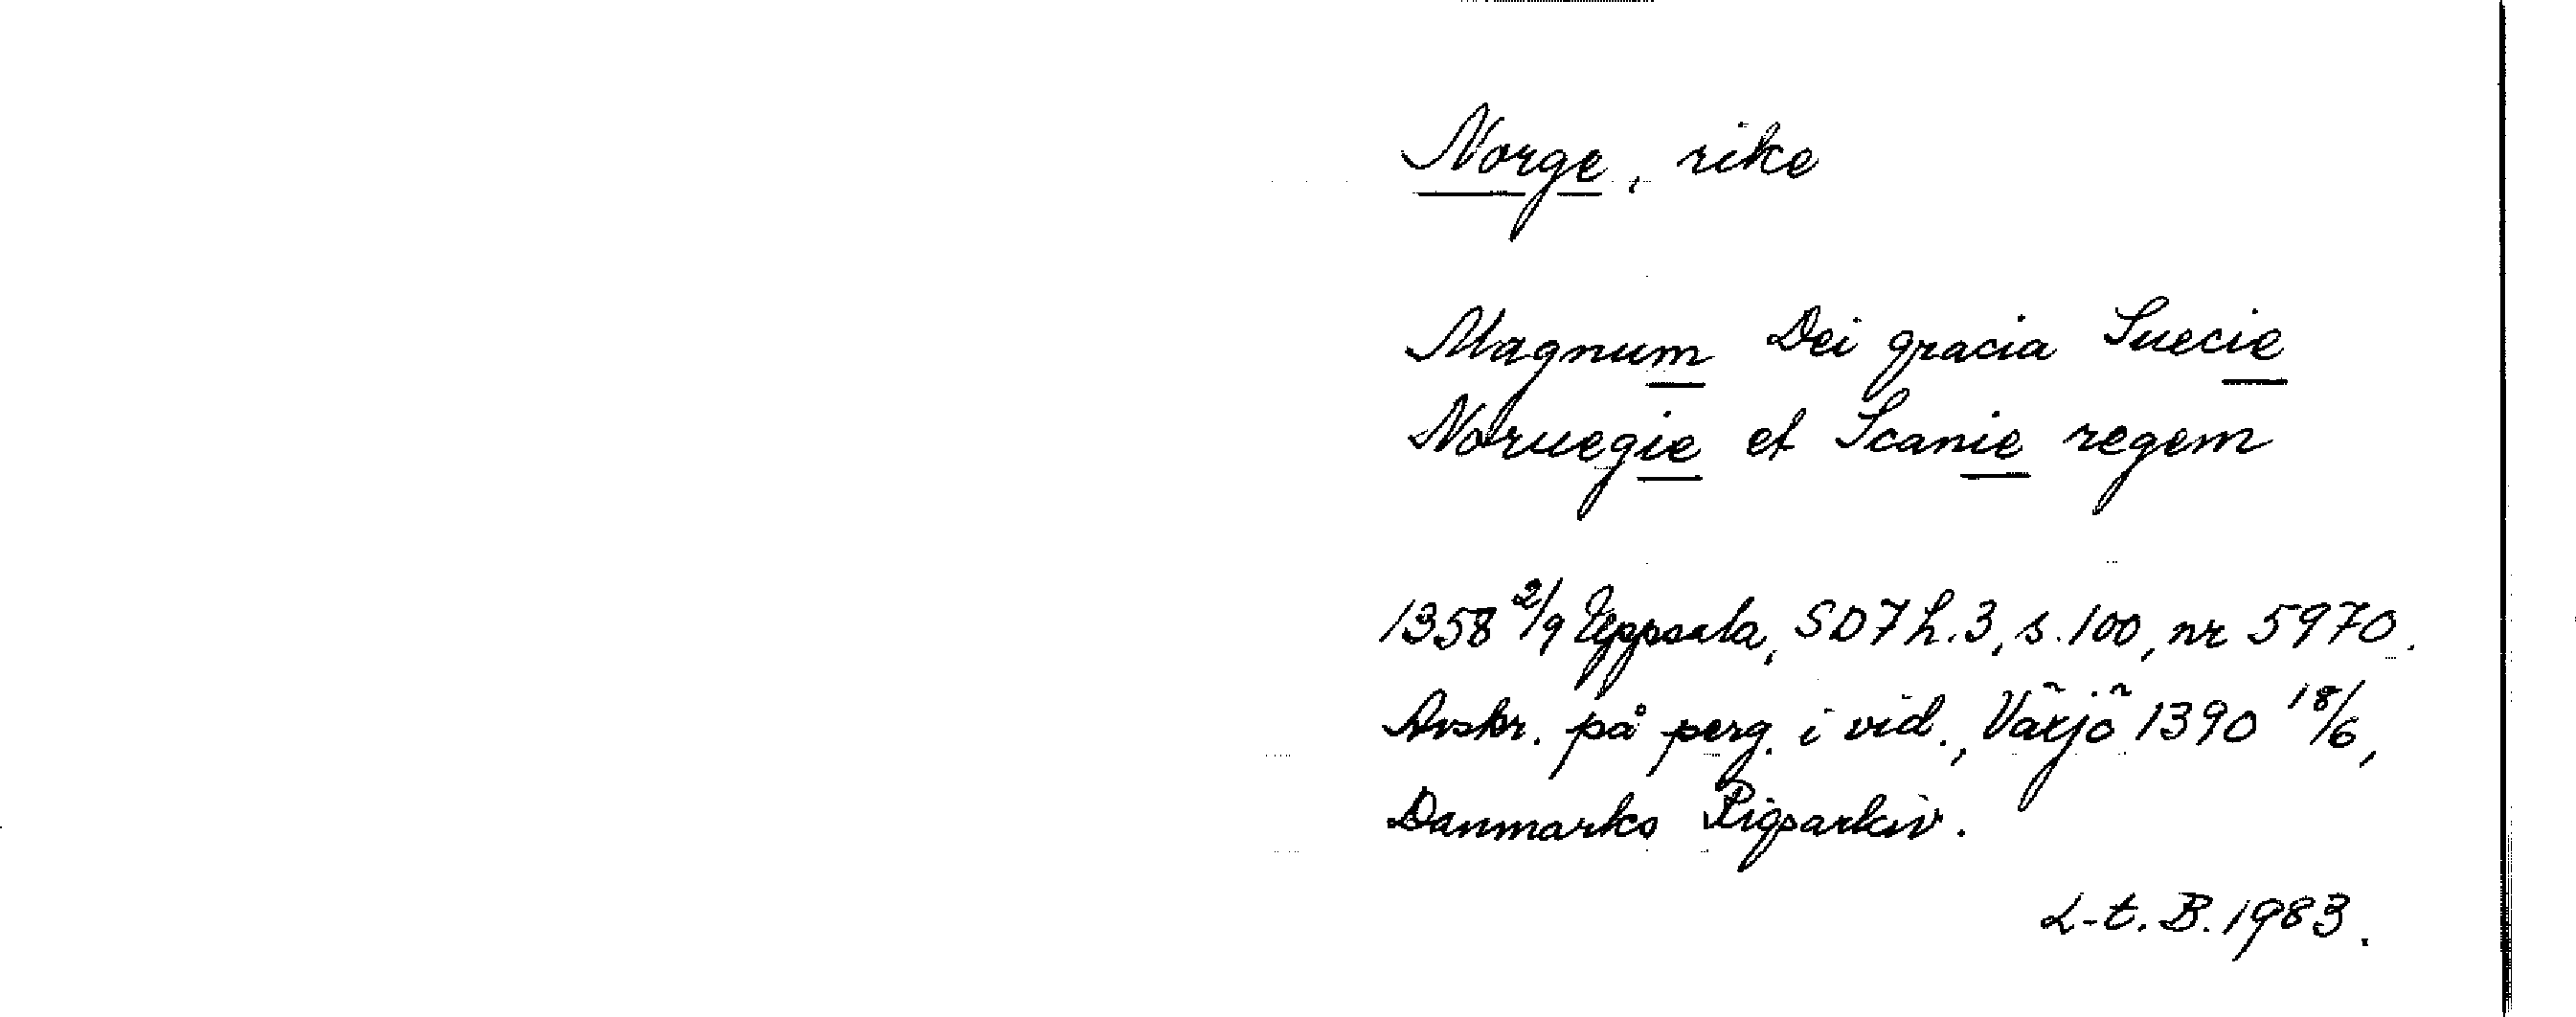 Norge, rike
Magnum Dei gracia Suecie
Noruegie et Scanie regem
1358 2/9 Uppsala, SD7 h.3, s.100, nr 5970.
Avskr. på perg. i vid., Växjö 1390 18/6,
Danmarks Rigsarkiv.
L-t. B. 1983.